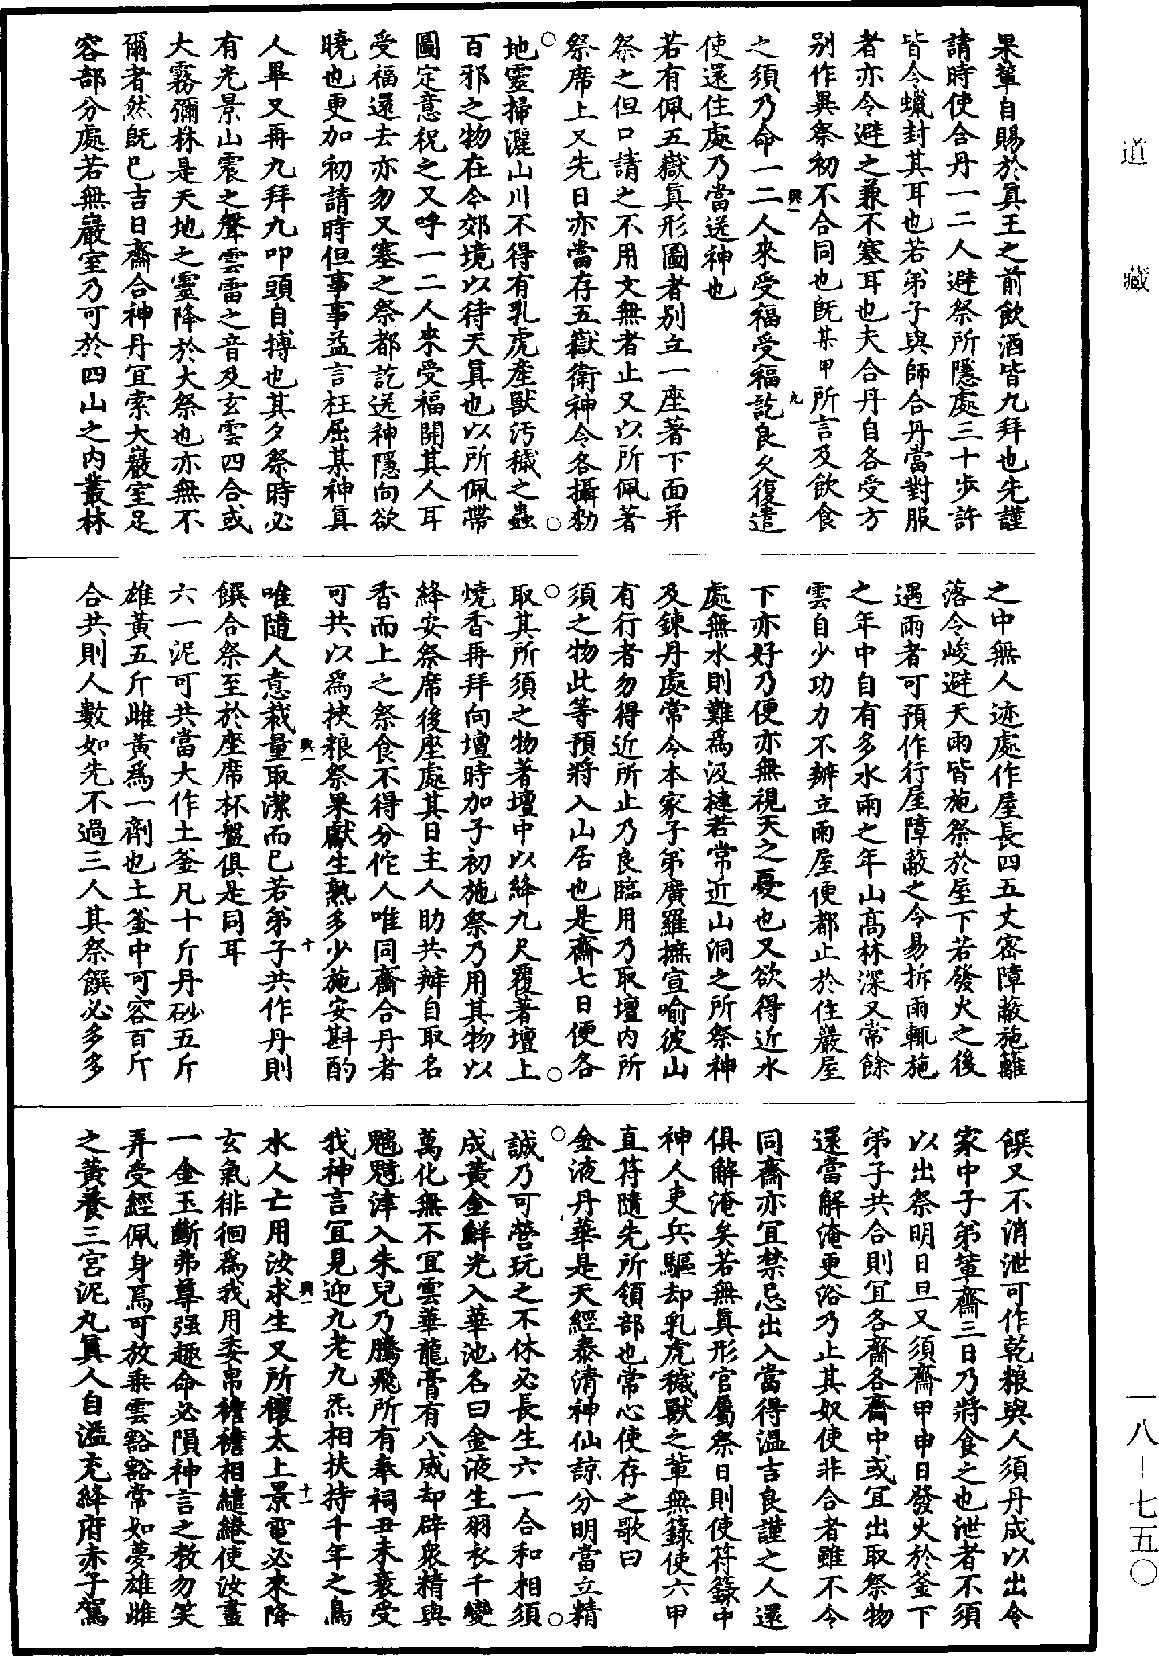 道藏
果輩自賜於真王之前飲酒皆九拜也先謹
請時使合丹一二人避祭所隱處三十步許
皆令蠟封其耳也若弟子與師合丹當對服
者亦令避之兼不塞耳也夫合丹自各受方
別作異祭初不合同也既某甲所言及飲食
之須乃命一二人來受福受福訖良久復遣
使還住處乃當送神也
若有佩五嶽真形圖者別立一座著下面并
祭之但口請之不用文無者止又以所佩著
祭席上又先日亦當存五嶽衛神令各攝勑
地靈掃灑山川不得有乳虎產獸污穢之蟲
百邪之物在今郊境以待天真也以所佩帶
圖定意祝之又呼一二人來受福開其人耳
受福還去亦勿又塞之祭都訖送神隱向欲
曉也更加初請時但事事益言枉屈某神真
人畢又再九拜九叩頭自搏也其夕祭時必
有光景山震之聲雲雷之音及玄雲四合或
大霧彌林是天地之靈降於大祭也亦無不
爾者然既已吉日齋合神丹宜索大巖室足
容部分處若無巖室乃可於四山之內叢林
之中無人迹處作屋長四五丈密障蔽施籬
落令峻避天雨皆施祭於屋下若發火之後
遇雨者可預作行屋障蔽之令易拆雨輒施
之年中自有多水雨之年山高林深又常餘
雲自少功力不辦立雨屋便都止於住巖屋
下亦好乃便亦無視天之憂也又欲得近水
處無水則難為汲棲若常近山洞之所祭神
及鍊丹處常令本家子弟廣羅撫宣喻彼山
有行者勿得近所止乃良臨用乃取壇內所
須之物此等預將入山居也是齋七日便各
取其所須之物著壇中以絳九尺覆著壇上
燒香再拜向壇時加子初施祭乃用其物以
絳安祭席後座處其日主人助共辦自取名
香而上之祭食不得分作人唯同齋合丹者
可共以為挾粮祭果獻生熟多少施安斟酌
唯隨人意裁量取潔而已若弟子共作丹則
饌合祭至於座席杯盤俱是同耳
六一泥可共當大作土釜凡十斤丹砂五斤
雄黃五斤雌黃為一劑也土釜中可容百斤
合共則人數如先不過三人其祭饌必多多
饌又不消泄可作乾粮與人須丹成以出令
家中子弟輩齋三日乃將食之也泄者不須
以出祭明日旦又須齋甲申日發火於釜下
弟子共合則宜各齋各齋中或宜出取祭物
還當解淹更浴乃止其奴使非合者雖不令
同齋亦宜禁忌出入當得溫吉良謹之人還
俱解淹矣若無真形官屬祭日則使符籙中
神人吏兵驅却乳虎穢獸之輩無籙使六甲
直符隨先所領部也常心使存之歌曰
金液丹華是天經泰清神仙諒分明當立精
誠乃可營玩之不休必長生六一合和相須
成黃金鮮光入華池名曰金液生羽衣千變
萬化無不宜雲華龍膏有八威却辟眾精與
魑魅津入朱兒乃騰飛所有奉祠丑未衰受
我神言宜見迎九老九炁相扶持千年之鳥
水人亡用汝求生又所攘太上景電必來降
玄氣徘徊為我用委帛襜襜相繾綣使汝畫
一金玉斷弗尊强趣命必隕神言之教勿笑
弄受經佩身焉可放乘雲豁豁常如夢雄雌
之黃養三宮泥丸真人自溢充絳府赤子駕
一八—七五〇